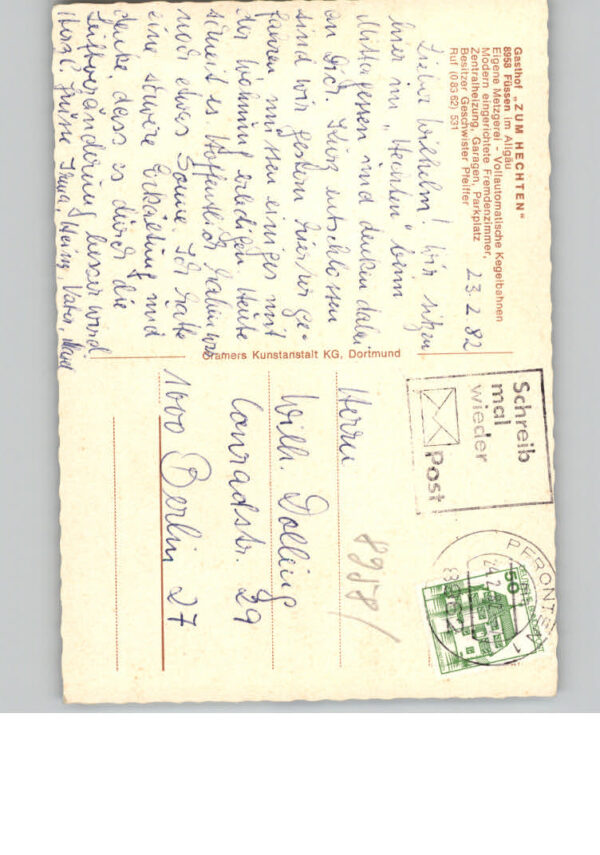 Gasthof „ZUM HECHTEN"
8958 Füssen im Allgäu
Eigene Metzgerei - Vollautomatische Kegelbahnen
Modern eingerichtete Fremdenzimmer,
Zentralheizung, Garagen, Parkplatz
Besitzer Geschwister Pfeiffer
Ruf (0 83 62) 531
23. 2. 82
Lieber Wilhelm! Wir sitzen
hier im „Hechten" beim
Mittagessen und denken dabei
an Dich. Kurz entschlossen
sind wir gestern hierher ge-
fahren, mussten einiges mit
der Wohnung erledigen. Heute
scheint es. Hoffentlich haben wir
noch etwas Sonne. Ich hatte
eine schwere Erkältung und
denke, dass es durch die
Luftveränderung besser wird
Herzl. Grüsse Heinz, Vater,
Cramers Kunstanstalt KG, Dortmund
Schreib
mal
wieder
Post
PFRONTEN
1
50
8958/
Herrn
Wilh. Dolling
Conradstr. 29
1000 Berlin 27